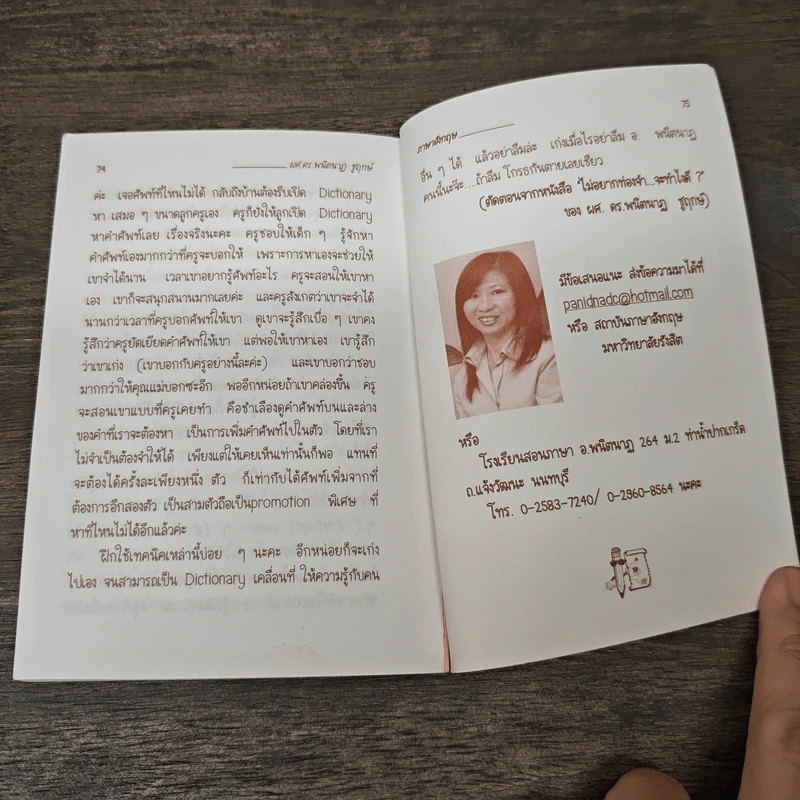 74
ผศ.ดร.พนิตนาฏ ชูฤกษ์
ค่ะ เจอศัพท์ที่ไหนไม่ได้ กลับถึงบ้านต้องรีบเปิด Dictionary
หา เสมอ ๆ ขนาดลูกครูเอง ครูก็ยังให้ลูกเปิด Dictionary
หาคำศัพท์เลย เรื่องจริงนะคะ ครูชอบให้เด็ก ๆ รู้จักหา
คำศัพท์เองมากกว่าที่ครูจะบอกให้ เพราะการหาเองจะช่วยให้
เขาจำได้นาน เวลาเขาอยากรู้ศัพท์อะไร ครูจะสอนให้เขาหา
เอง เขาก็จะสนุกสนานมากเลยค่ะ และครูสังเกตว่าเขาจะจำได้
นานกว่าเวลาที่ครูบอกศัพท์ให้เขา ดูเขาจะรู้สึกเบื่อ ๆ เขาคง
รู้สึกว่าครูยัดเยียดคำศัพท์ให้เขา แต่พอให้เขาหาเอง เขารู้สึก
ว่าเขาเก่ง (เขาบอกกับครูอย่างนี้ละค่ะ) และเขาบอกว่าชอบ
มากกว่าให้คุณแม่บอกซะอีก พออีกหน่อยถ้าเขาคล่องขึ้น ครู
จะสอนเขาแบบที่ครูเคยทำ คือชำเลืองดูคำศัพท์บนและล่าง
ของคำที่เราจะต้องหา เป็นการเพิ่มคำศัพท์ไปในตัว โดยที่เรา
ไม่จำเป็นต้องจำให้ได้ เพียงแต่ให้เคยเห็นเท่านั้นก็พอ แทนที่
จะต้องได้ครั้งละเพียงหนึ่ง ตัว ก็เท่ากับได้ศัพท์เพิ่มจากที่
ต้องการอีกสองตัว เป็นสามตัวถือเป็นpromotion พิเศษ ที่
หาที่ไหนไม่ได้อีกแล้วค่ะ
ฝึกใช้เทคนิคเหล่านี้บ่อย ๆ นะคะ อีกหน่อยก็จะเก่ง
ไปเอง จนสามารถเป็น Dictionary เคลื่อนที่ ให้ความรู้กับคน
ภาษาอังกฤษ
75
อื่น ๆ ได้ แล้วอย่าลืมล่ะ เก่งเมื่อไรอย่าลืม อ. พนิตนาฏ
คนนี้นะจ๊ะ...ถ้าลืม โกรธกันตายเลยเชียว
(ตัดตอนจากหนังสือ ไม่อยากท่องจำ...จะทำไงดี ?"
ของ ผศ. ดร.พนิตนาฏ ชูฤกษ์)
มีข้อเสนอแนะ ส่งข้อความมาได้ที่
panidnadc@hotmail.com
หรือ สถาบันภาษาอังกฤษ
มหาวิทยาลัยรังสิต
หรือ
โรงเรียนสอนภาษา อ.พนิตนาฏ 264 ม.2 ท่าน้ำปากเกร็ด
ถ.แจ้งวัฒนะ นนทบุรี
โทร. 0-2583-7240/ 0-2960-8564 นะคะ